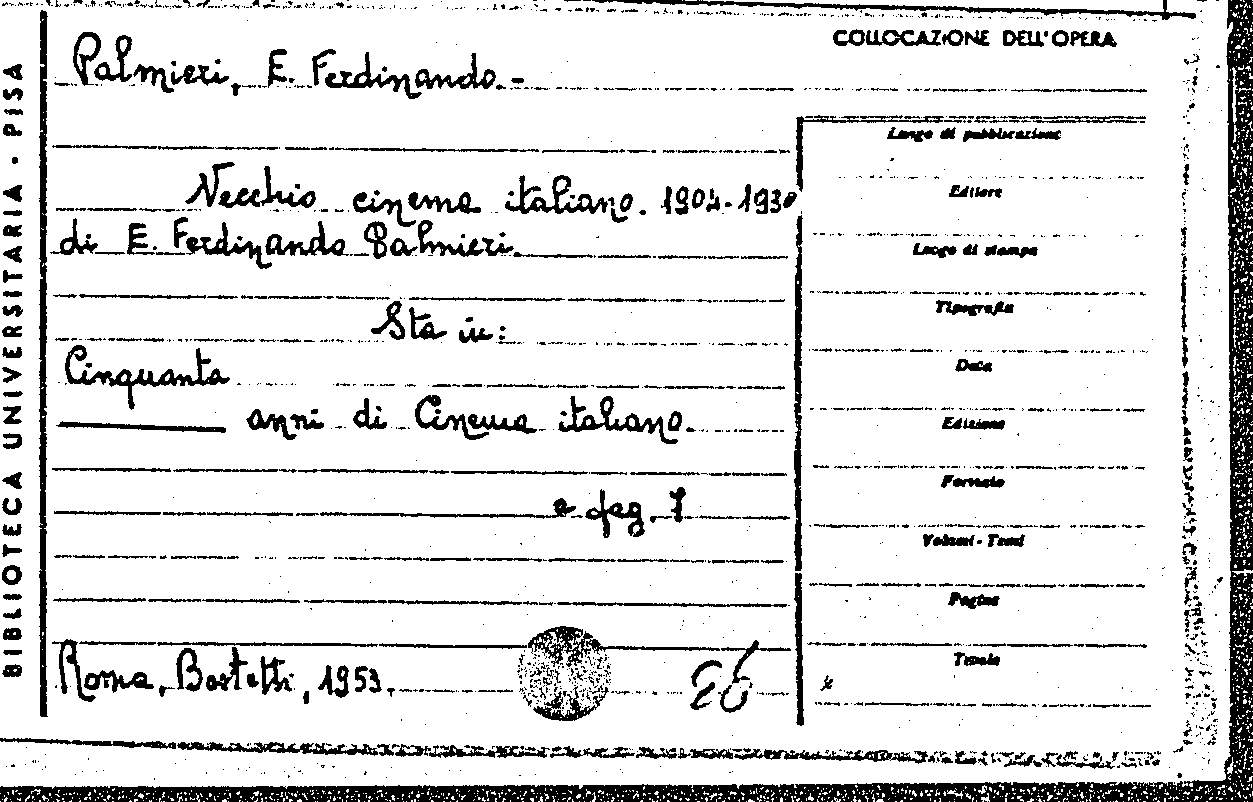 BIBLIOTECA UNIVERSITARIA - PISA
Palmieri, E. Ferdinando. -
Vecchio cinema italiano. 1904-1930
di E. Ferdinando Palmieri.
Sta in:
Cinquanta
anni di Cinema italiano.
a pag. 7
Roma, Bestetti, 1953.
26
COLLOCAZIONE DELL'OPERA
Luogo di pubblicazione
Editore
Luogo di stampa
Tipografia
Data
Edizione
Formato
Volumi - Tomi
Pagine
Tavole